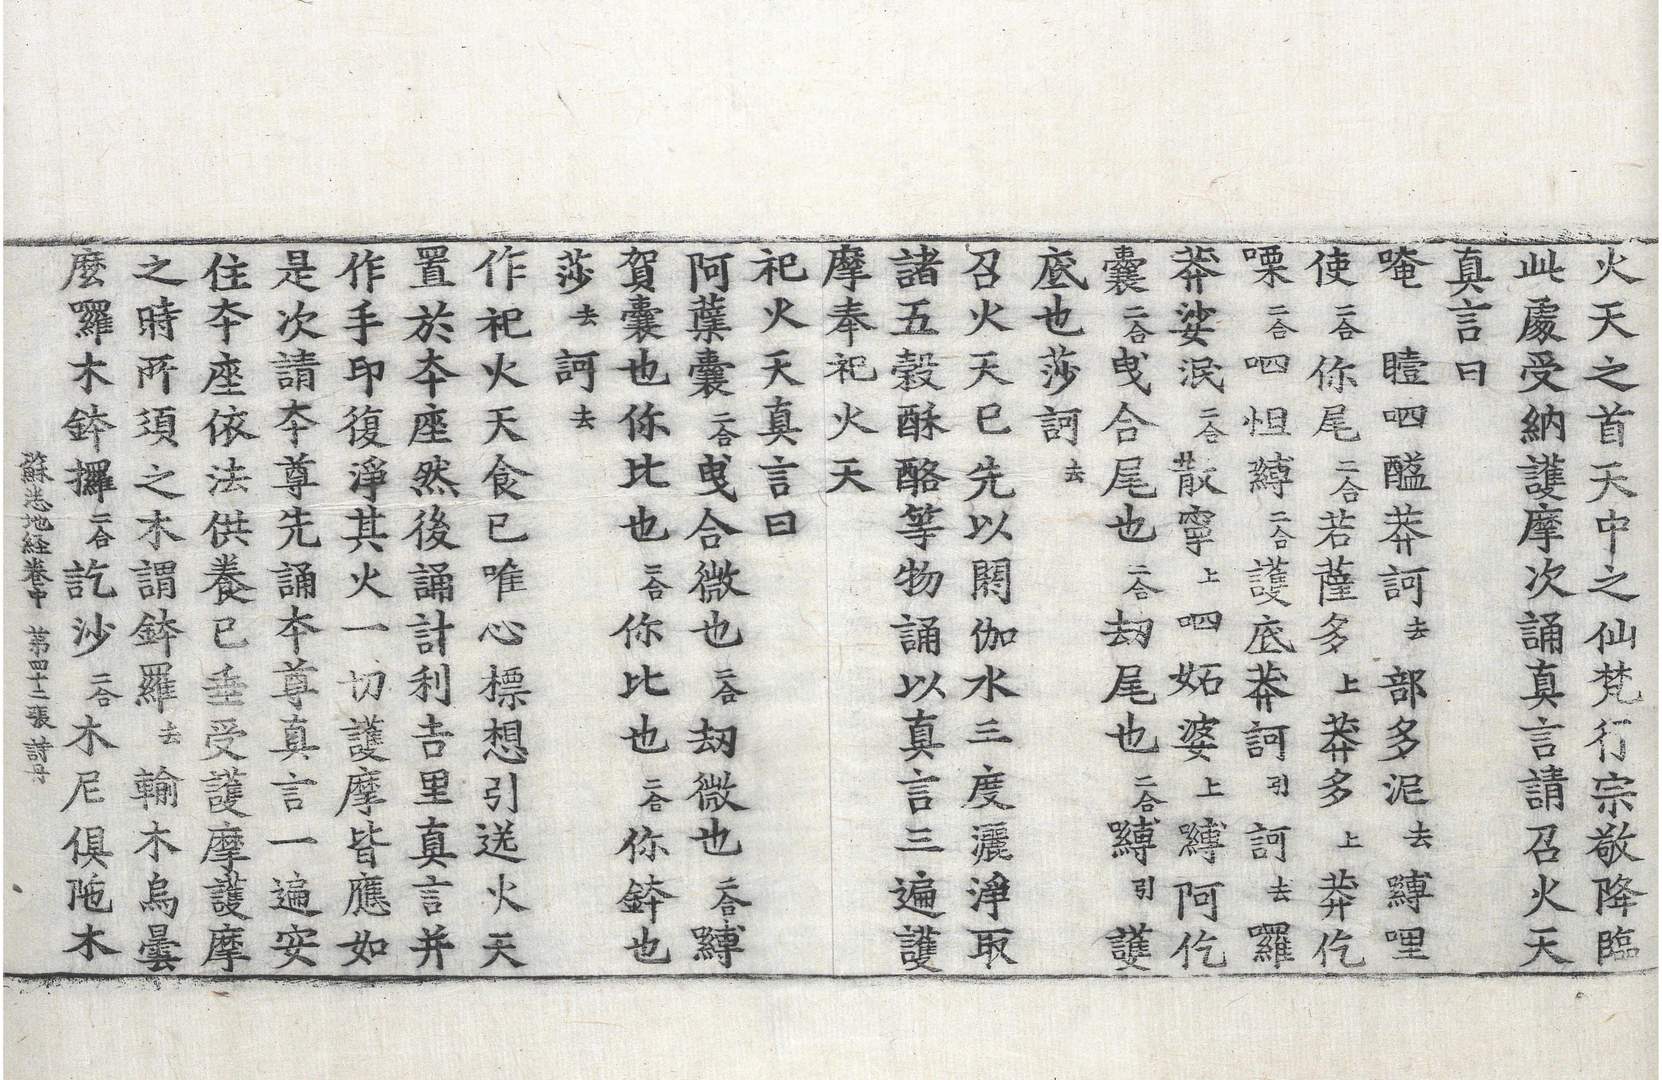 火天之首天中之仙梵行宗敬降臨
此處受納護摩次誦真言請召火天
真言曰
唵 曀呬醯莽訶去部多泥去縛哩
使二合你尾二合若薩多上莽多上莽仡
㗚二合呬怛縛二合護底莽訶引訶去囉
莽娑泯二合散寧上呬妬婆上縛阿仡
囊二合曳合尾也二合劫尾也二合縛引護
底也莎訶去
召火天已先以閼伽水三度灑淨取
諸五穀酥酪等物誦以真言三遍護
摩奉祀火天
祀火天真言曰
阿蘖囊二合曳合微也二合劫微也二合縛
賀囊也你比也二合你比也二合你鉢也
莎去訶去
作祀火天食已唯心標想引送火天
置於本座然後誦計利吉里真言并
作手印復淨其火一切護摩皆應如
是次請本尊先誦本尊真言一遍安
住本座依法供養已垂受護摩護摩
之時所須之木謂鉢羅去輸木烏曇
麼囉木鉢攞二合訖沙二合木尼俱陁木
蘇悉地経卷中 第四十二張 詩